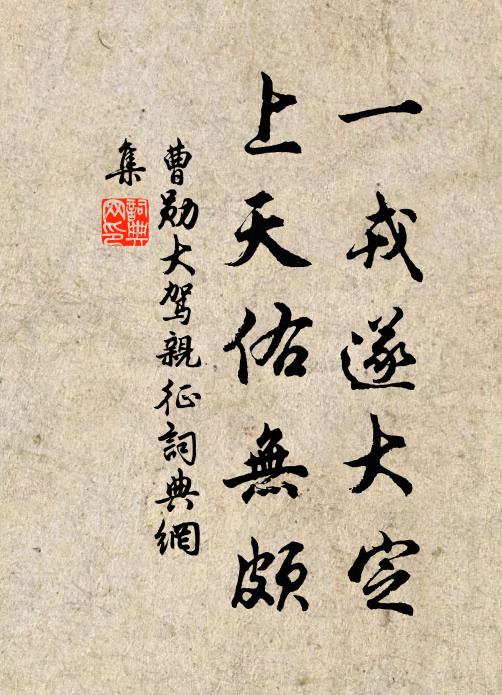 一戎遂大定
上天佑無頗
曹勛大駕親征詞典網
集
詞典
網印